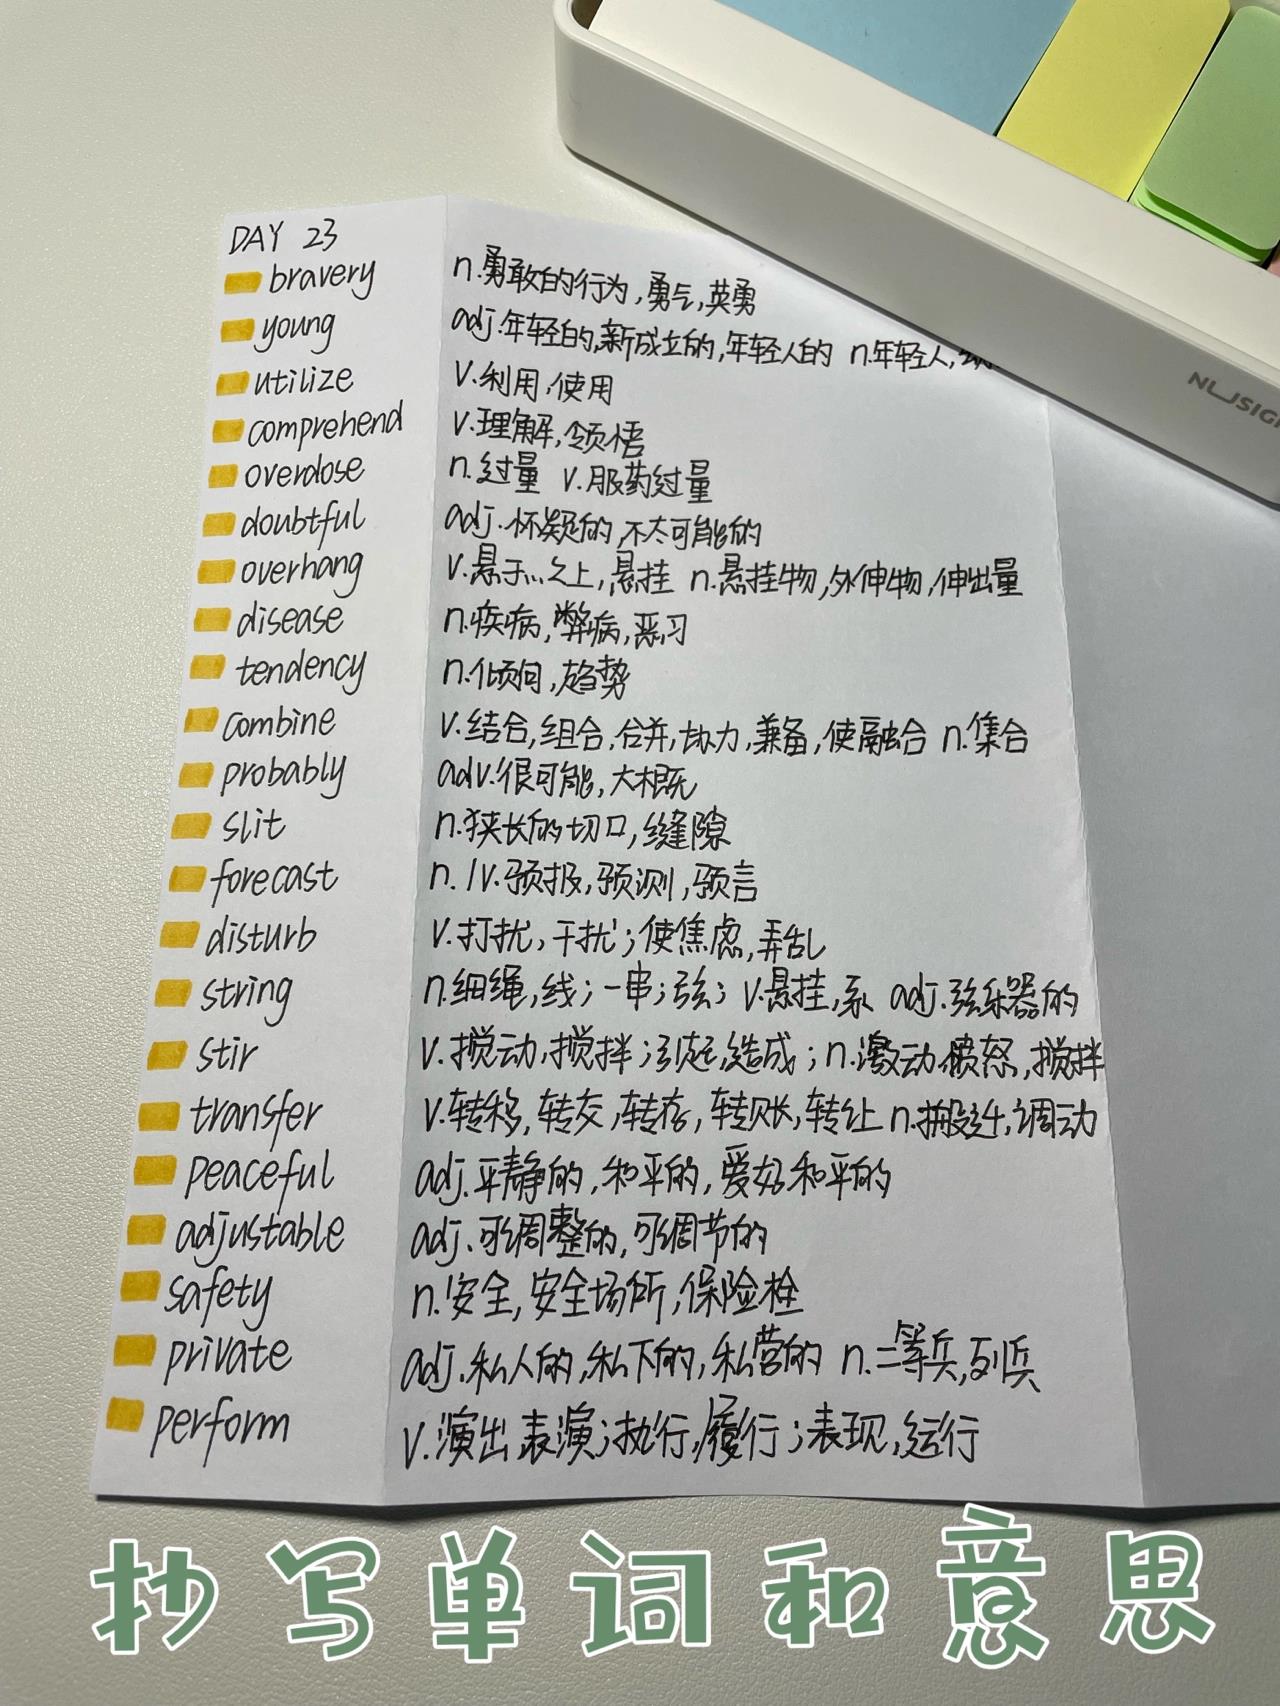 DAY 23
bravery n.勇敢的行为,勇气,英勇
young adj.年轻的,新成立的,年轻人的 n.年轻人,
utilize v.利用,使用
comprehend v.理解,领悟
overdose n.过量 v.服药过量
doubtful adj.怀疑的,不太可能的
overhang v.悬于…之上,悬挂 n.悬挂物,外伸物,伸出量
disease n.疾病,弊病,恶习
tendency n.倾向,趋势
combine v.结合,组合,合并,协力,兼备,使融合 n.集合
probably adv.很可能,大概
slit n.狭长的切口,缝隙
forecast n./v.预报,预测,预言
disturb v.打扰,干扰;使焦虑,弄乱
string n.细绳,线;一串;弦; v.悬挂,系 adj.弦乐器的
stir v.搅动,搅拌;引起,造成;n.激动,愤怒,搅拌
transfer v.转移,转交,转存,转账,转让 n.搬迁,调动
peaceful adj.平静的,和平的,爱好和平的
adjustable adj.可调整的,可调节的
safety n.安全,安全场所,保险栓
private adj.私人的,私下的,私营的 n.二等兵,列兵
perform v.演出,表演;执行,履行;表现,运行
抄写单词和意思